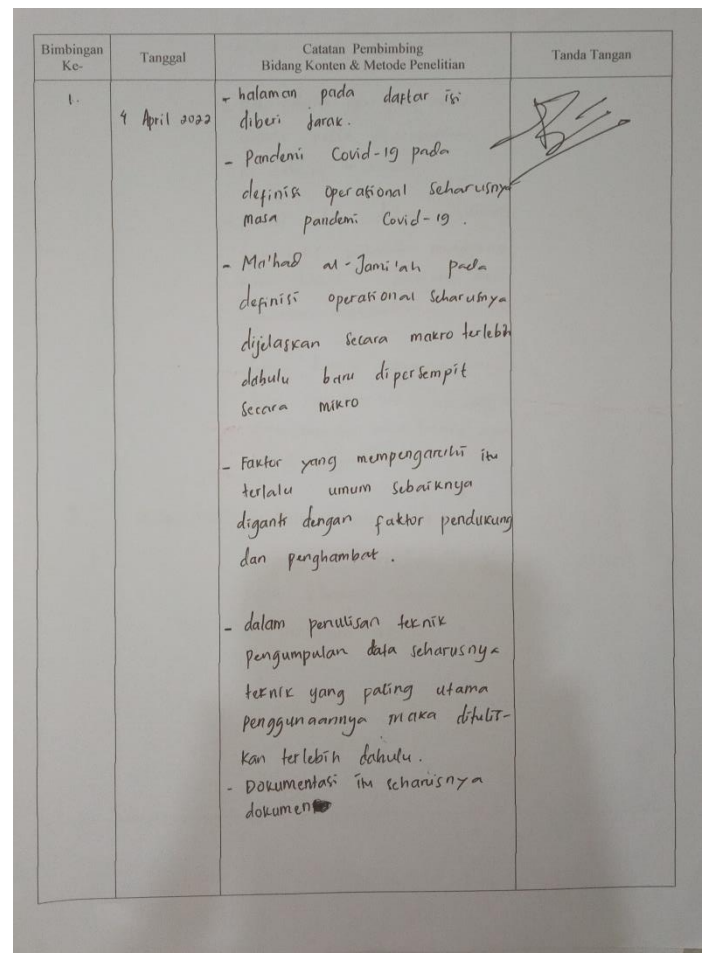 Bimbingan Ke-
Tanggal
Catatan Pembimbing
Bidang Konten & Metode Penelitian
Tanda Tangan
1.
4 April 2022
- halaman pada daftar isi
diberi jarak.
- Pandemi Covid-19 pada
definisi operational seharusnya
masa pandemi Covid-19.
- Ma'had al-Jami'ah pada
definisi operational seharusnya
dijelaskan secara makro terlebih
dahulu baru dipersempit
secara mikro
- Faktor yang mempengaruhi itu
terlalu umum sebaiknya
diganti dengan faktor pendukung
dan penghambat.
- dalam penulisan teknik
pengumpulan data seharusnya
teknik yang paling utama
penggunaannya maka ditulis-
kan terlebih dahulu.
- Dokumentasi itu seharusnya
dokumen